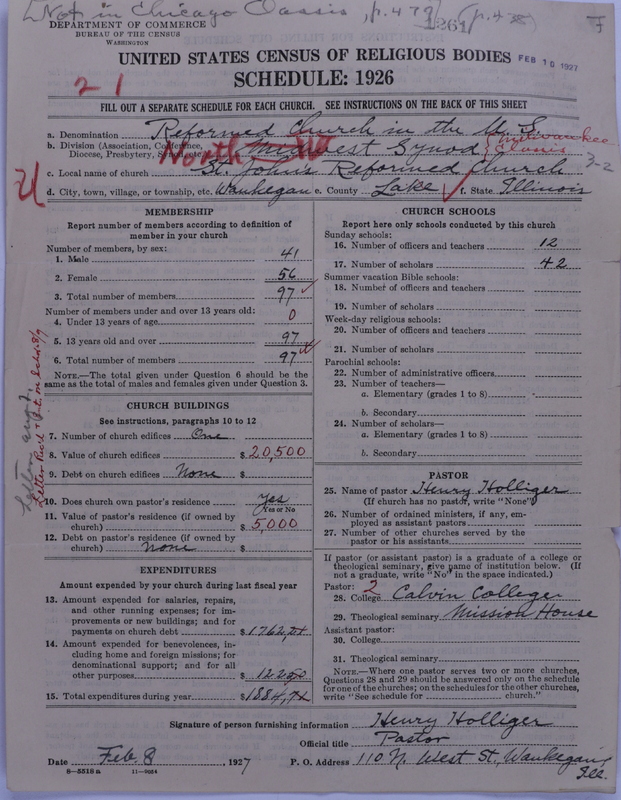 [Not in Chicago Classis, p. 479 (p. 48)
1261
DEPARTMENT OF COMMERCE
BUREAU OF THE CENSUS
WASHINGTON
FEB 10 1927
UNITED STATES CENSUS OF RELIGIOUS BODIES
SCHEDULE: 1926
2 1
FILL OUT A SEPARATE SCHEDULE FOR EACH CHURCH. SEE INSTRUCTIONS ON THE BACK OF THIS SHEET
a. Denomination Reformed Church in the U. S.
b. Division (Association, Conference, Diocese, Presbytery, Synod, etc.) Midwest Synod
North W
Milwaukee
Classis
3-2
c. Local name of church St. John's Reformed Church
d. City, town, village, or township, etc. Waukegan e. County Lake f. State Illinois
MEMBERSHIP
Report number of members according to definition of
member in your church
Number of members, by sex:
1. Male 41
2. Female 56
3. Total number of members 97
Number of members under and over 13 years old:
4. Under 13 years of age 0
5. 13 years old and over 97
6. Total number of members 97
NOTE.—The total given under Question 6 should be the
same as the total of males and females given under Question 3.
CHURCH BUILDINGS
See instructions, paragraphs 10 to 12
7. Number of church edifices One
8. Value of church edifices $ 20,500
9. Debt on church edifices None $
10. Does church own pastor's residence yes
Yes or No
11. Value of pastor's residence (if owned by
church) $ 5,000
12. Debt on pastor's residence (if owned by
church) None $
EXPENDITURES
Amount expended by your church during last fiscal year
13. Amount expended for salaries, repairs,
and other running expenses; for im-
provements or new buildings; and for
payments on church debt $ 1762,21
14. Amount expended for benevolences, in-
cluding home and foreign missions; for
denominational support; and for all
other purposes $ 122.50
15. Total expenditures during year $ 1884,71
CHURCH SCHOOLS
Report here only schools conducted by this church
Sunday schools:
16. Number of officers and teachers 12
17. Number of scholars 42
Summer vacation Bible schools:
18. Number of officers and teachers
19. Number of scholars
Week-day religious schools:
20. Number of officers and teachers
21. Number of scholars
Parochial schools:
22. Number of administrative officers
23. Number of teachers—
a. Elementary (grades 1 to 8)
b. Secondary
24. Number of scholars—
a. Elementary (grades 1 to 8)
b. Secondary
PASTOR
25. Name of pastor Henry Holliger
(If church has no pastor, write "None")
26. Number of ordained ministers, if any, em-
ployed as assistant pastors
27. Number of other churches served by the
pastor or his assistants
If pastor (or assistant pastor) is a graduate of a college or
theological seminary, give name of institution below. (If
not a graduate, write "No" in the space indicated.)
Pastor: 2
28. College Calvin College
29. Theological seminary Mission House
Assistant pastor:
30. College
31. Theological seminary
NOTE.—Where one pastor serves two or more churches,
Questions 28 and 29 should be answered only on the schedule
for one of the churches; on the schedules for the other churches,
write "See schedule for church."
Signature of person furnishing information Henry Holliger
Official title Pastor
Date Feb. 8 1927 P. O. Address 110 N. West St, Waukegan,
Ill.
8—5518 a 11—9024